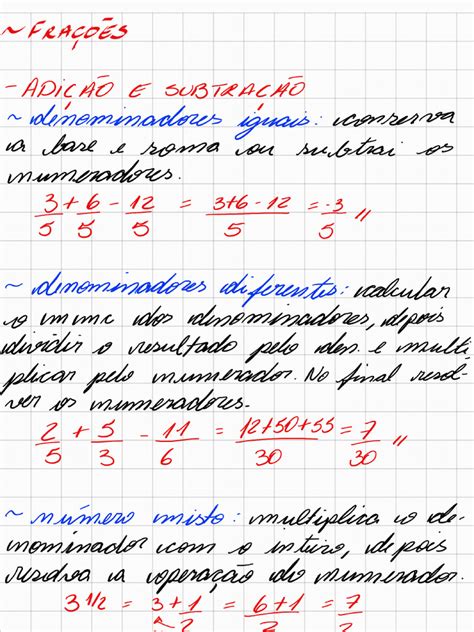 ~ FRAÇÕES
- ADIÇÃO E SUBTRAÇÃO
~ denominadores iguais: conserva
a base e soma ou subtrai os
numeradores.
3/5 + 6/5 - 12/5 = 3+6-12/5 = -3/5 //
~ denominadores diferentes: calcular
o mmc dos denominadores, depois
dividir o resultado pelo den. e multi
plicar pelo numerador. No final resol-
ver os numeradores.
2/5 + 5/3 - 11/6 = 12+50+55/30 = 7/30 //
~ número misto: multiplica o de-
nominador com o intiro, depois
resolva a operação do numerador.
3 1/2 = 3+1/2 = 6+1/2 = 7/2